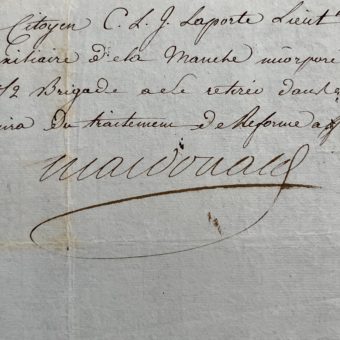 Citoyen C. L. J. Laporte Lieut.
xiliaire de la Manche incorporé
1/2 Brigade a été retirée dans
ira du traitement de Reforme a
Macdonald